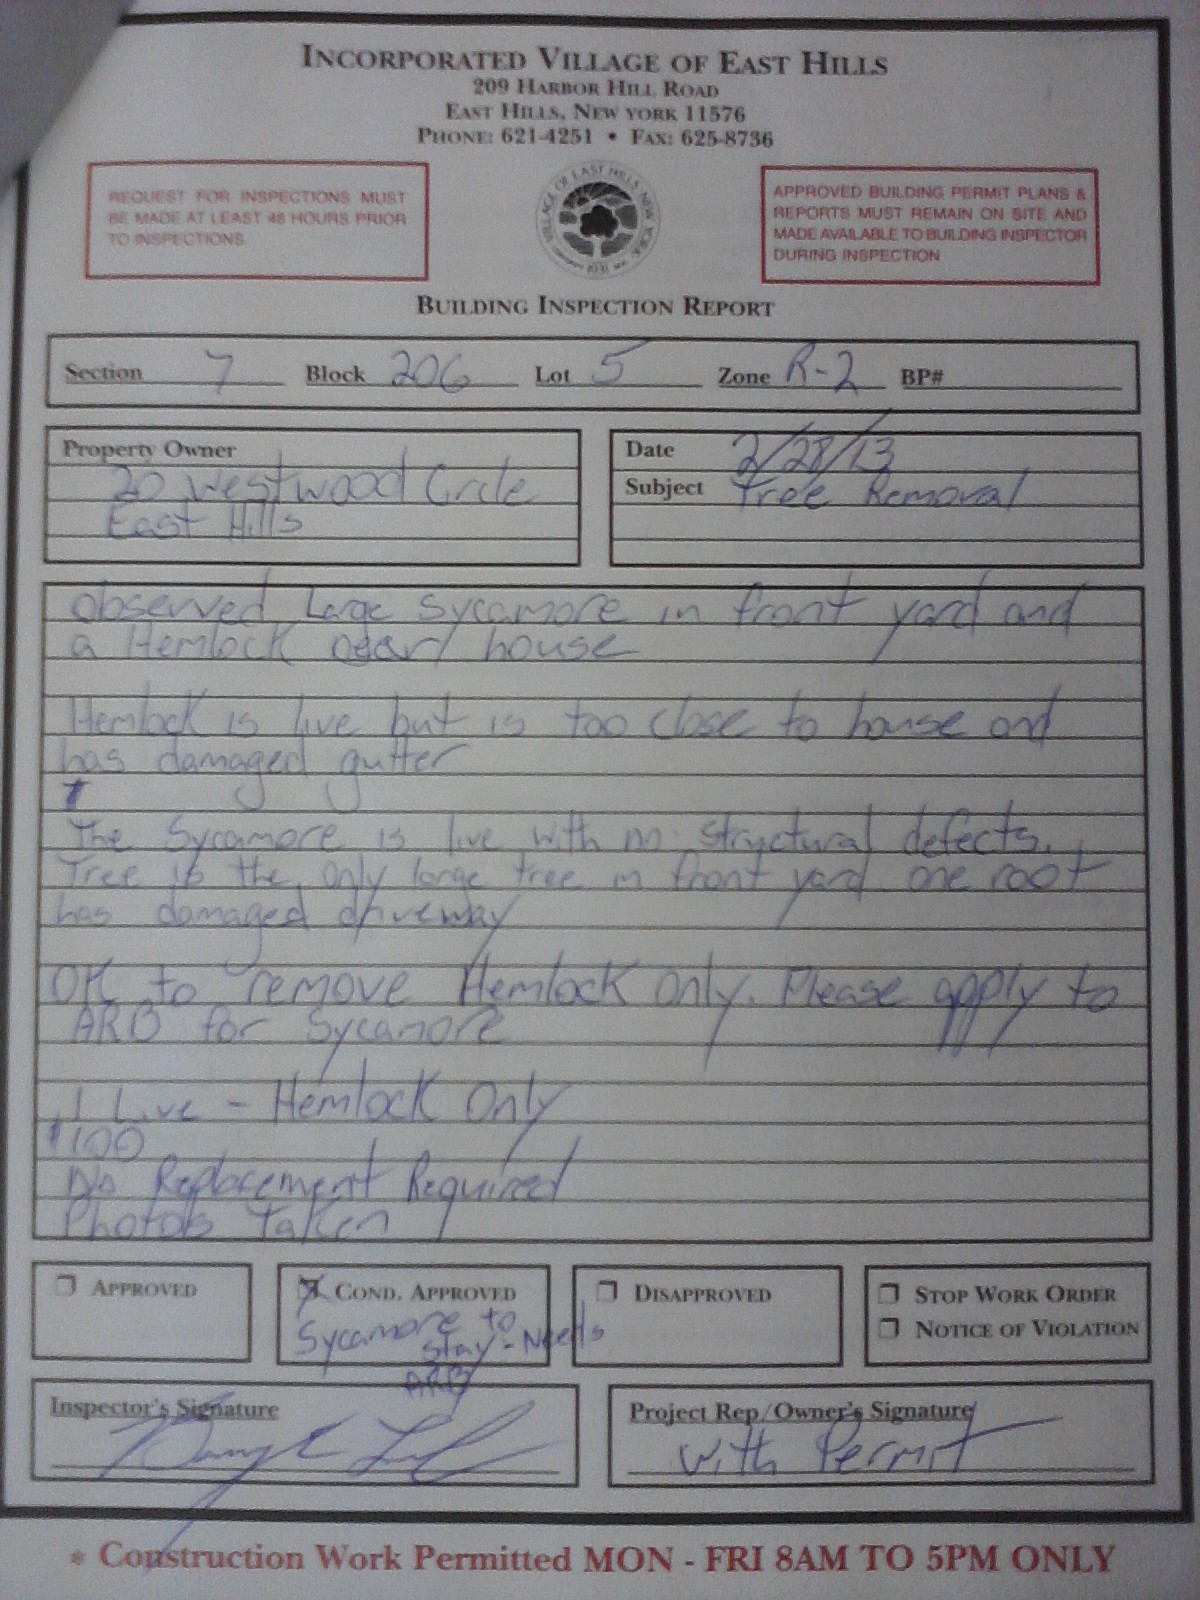 INCORPORATED VILLAGE OF EAST HILLS
209 HARBOR HILL ROAD
EAST HILLS, NEW YORK 11576
PHONE: 621-4251 • FAX: 625-8736
REQUEST FOR INSPECTIONS MUST
BE MADE AT LEAST 48 HOURS PRIOR
TO INSPECTIONS.
VILLAGE OF EAST HILLS NEW YORK
1931
APPROVED BUILDING PERMIT PLANS &
REPORTS MUST REMAIN ON SITE AND
MADE AVAILABLE TO BUILDING INSPECTOR
DURING INSPECTION
BUILDING INSPECTION REPORT
Section 7 Block 206 Lot 5 Zone R-2 BP#
Property Owner
20 Westwood Circle
East Hills
Date 2/28/13
Subject Tree Removal
Observed Large Sycamore in front yard and
a Hemlock near house
Hemlock is live but is too close to house and
has damaged gutter
The Sycamore is live with no structural defects.
Tree is the only large tree in front yard one root
has damaged driveway
OK to remove Hemlock Only. Please apply to
ARB for Sycamore
1 Live - Hemlock Only
$100
No Replacement Required
Photos Taken
APPROVED
COND. APPROVED
Sycamore to
Stay - Needs
ARB
DISAPPROVED
STOP WORK ORDER
NOTICE OF VIOLATION
Inspector's Signature
Project Rep/Owner's Signature
with Permit
* Construction Work Permitted MON - FRI 8AM TO 5PM ONLY